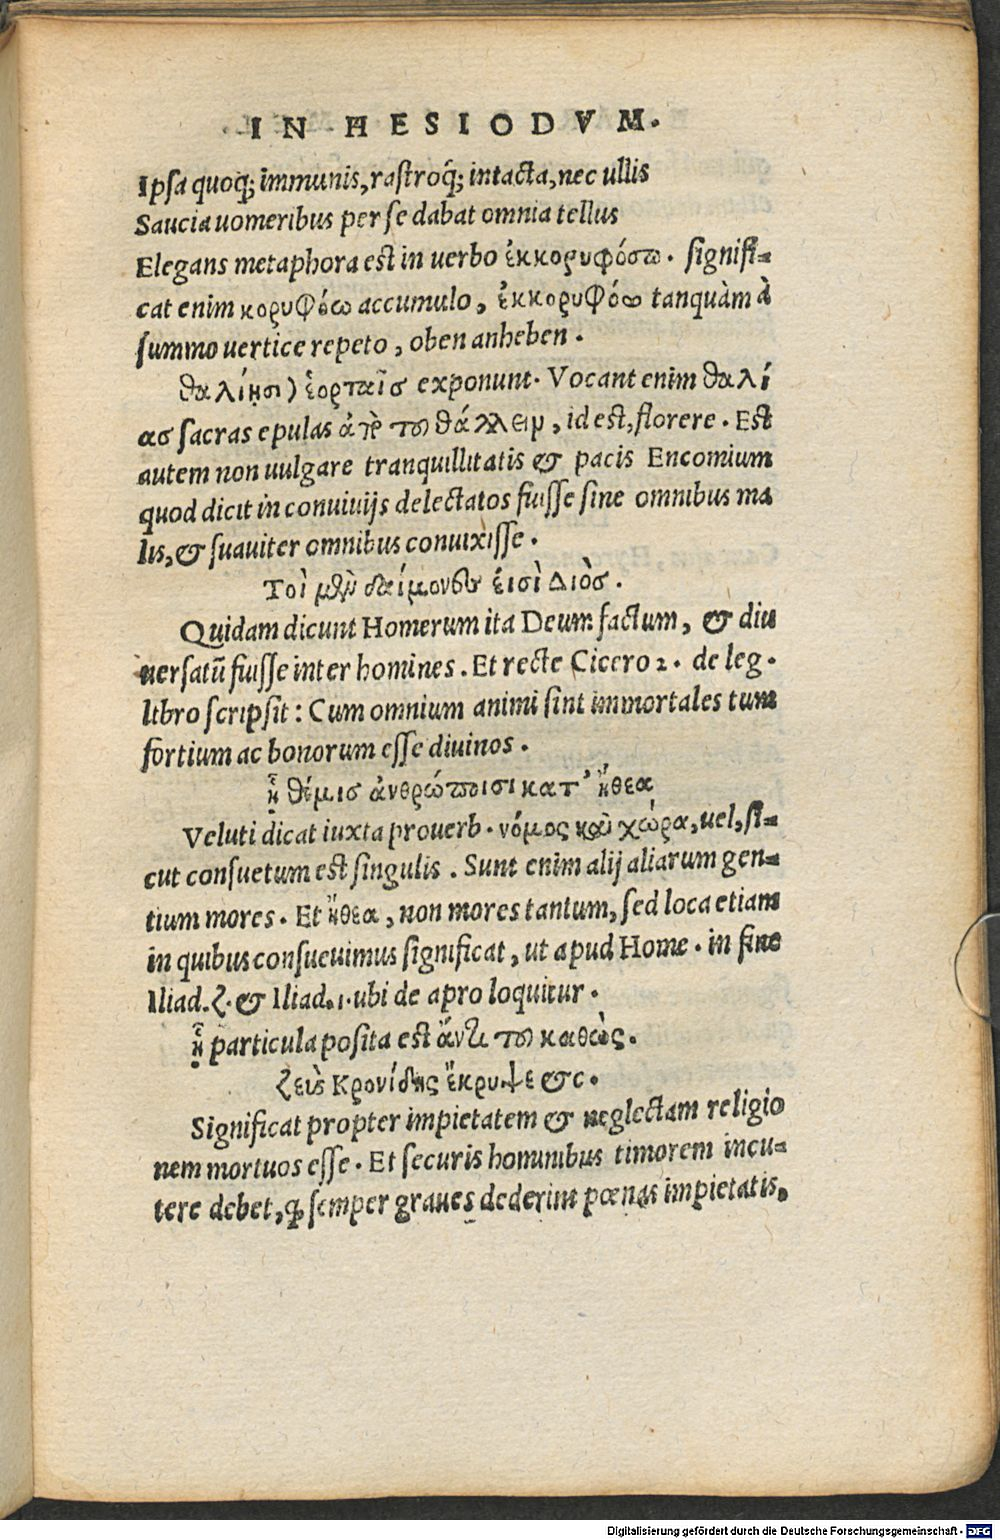 IN HESIODVM.
Ipsa quoq; immunis, rastroq̃; intacta, nec ullis
Saucia uomeribus per se dabat omnia tellus
Elegans metaphora est in uerbo ἐκκορυφόσω. signifi-
cat enim κορυφόω accumulo, ἐκκορυφόω tanquàm à
summo uertice repeto, oben anheben.
θαλίῃσι) ἑορταῖσ exponunt. Vocant enim θαλί
ασ sacras epulas ἀπὸ τοῦ θάλλειν, id est, florere. Est
autem non uulgare tranquillitatis & pacis Encomium
quod dicit in conuiuijs delectatos fuisse sine omnibus ma
lis, & suauiter omnibus conuixisse.
Τοὶ μὲν δαίμονες εἰσὶ Διὸσ.
Quidam dicunt Homerum ita Deum factum, & diu
uersatũ fuisse inter homines. Et recte Cicero 2. de leg.
libro scripsit: Cum omnium animi sint immortales tum
fortium ac bonorum esse diuinos.
ᾗ θέμισ ἀνθρώποισι κατ' ἤθεα
Veluti dicat iuxta prouerb. νόμος καὶ χώρα, uel, si-
cut consuetum est singulis. Sunt enim alij aliarum gen-
tium mores. Et ἤθεα, non mores tantum, sed loca etiam
in quibus consueuimus significat, ut apud Home. in fine
Iliad. ζ. & Iliad. ι. ubi de apro loquitur.
ᾗ particula posita est ἀντὶ τοῦ καθὼς.
ζεὺς Κρονίδης ἔκρυψε &c.
Significat propter impietatem & neglectam religio
nem mortuos esse. Et securis hominibus timorem incu-
tere debet, ꝙ semper graues dederint pœnas impietatis,
Digitalisierung gefördert durch die Deutsche Forschungsgemeinschaft - DFG